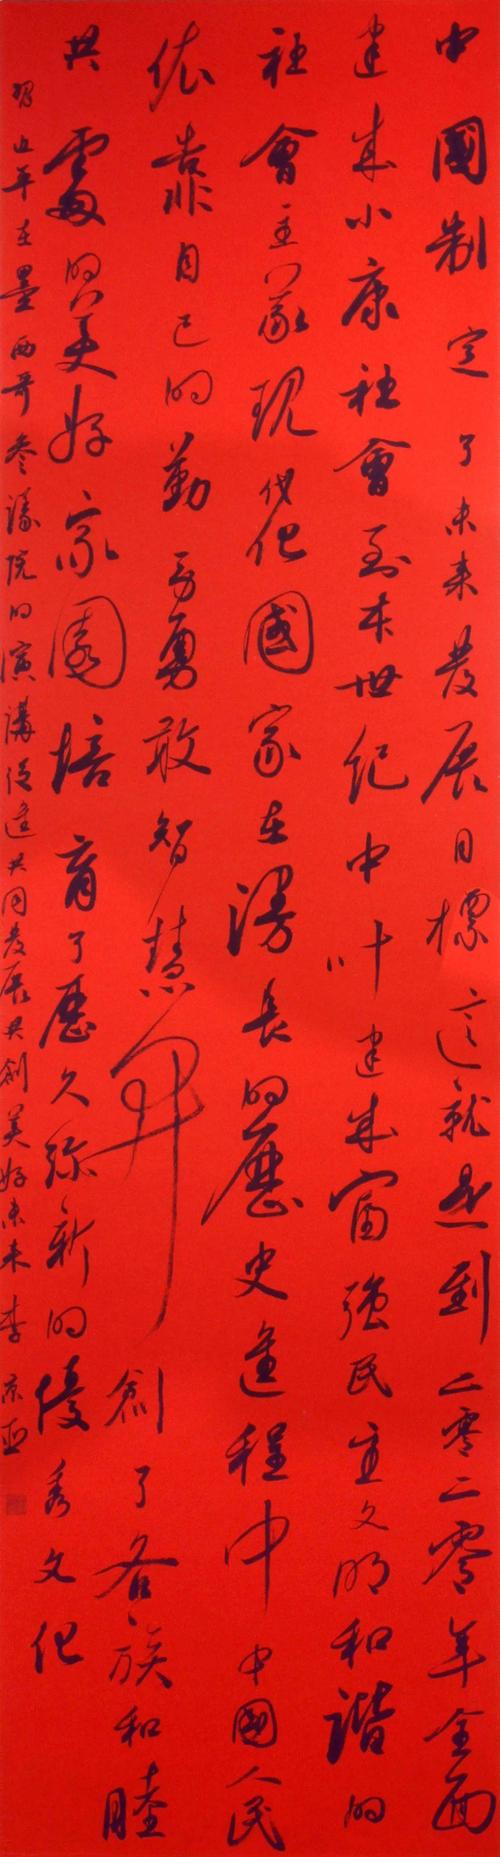 中國制定了未来發展目標這就是到二零二零年全面
建成小康社會到本世紀中叶建成富強民主文明和諧的
社會主義現代化國家在漫長的歷史進程中中國人民
依靠自己的勤劳勇敢智慧开創了各族和睦
共處的美好家園培育了歷久弥新的優秀文化
習近平在墨西哥参議院的演講促進共同發展共創美好未来李京